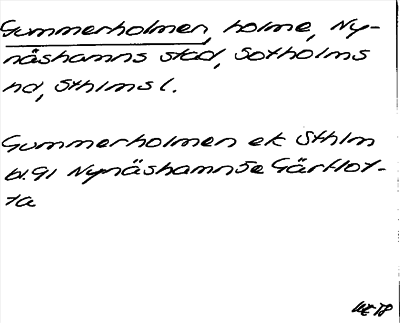 Gummerholmen, holme, Ny-
näshamns stad, Sotholms
hd, Sthlms l.
Gummerholmen ek Sthlm
bl. 91 Nynäshamn 5e Gärflot-
ta